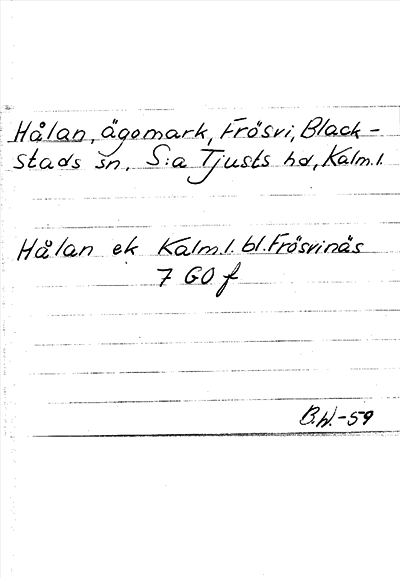 Hålan, ägomark, Frösvi, Black-
stads sn, S:a Tjusts hd, Kalm.l.
Hålan ek Kalm.l. bl. Frösvinäs
7 GO f
B.W.-59